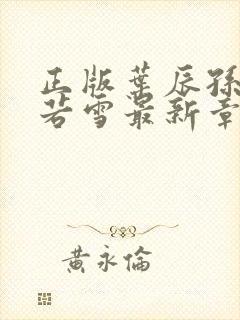 正版葉辰孫
若雪最新章
黃永倫